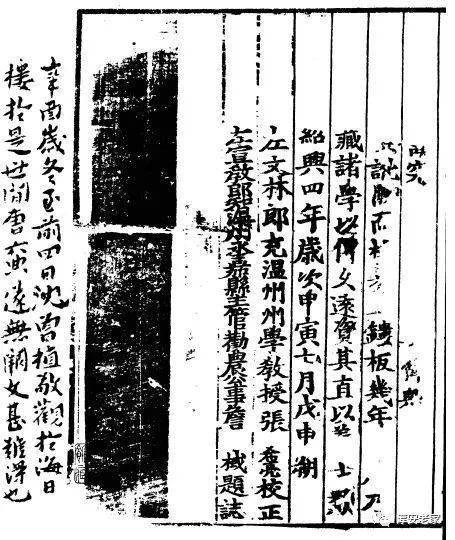 鏤板幾年
藏諸學以傳久遠 其直以 士類
紹興四年歲次甲寅七月戊申朔
左文林郎充溫州州學教授張 希亮校正
左宣教郎知溫州永嘉縣主管勸農公事詹 棫題誌
辛酉歲冬至前四日沈曾植敬觀於海日
樓於是世間唐六典遂無闕文甚難得也